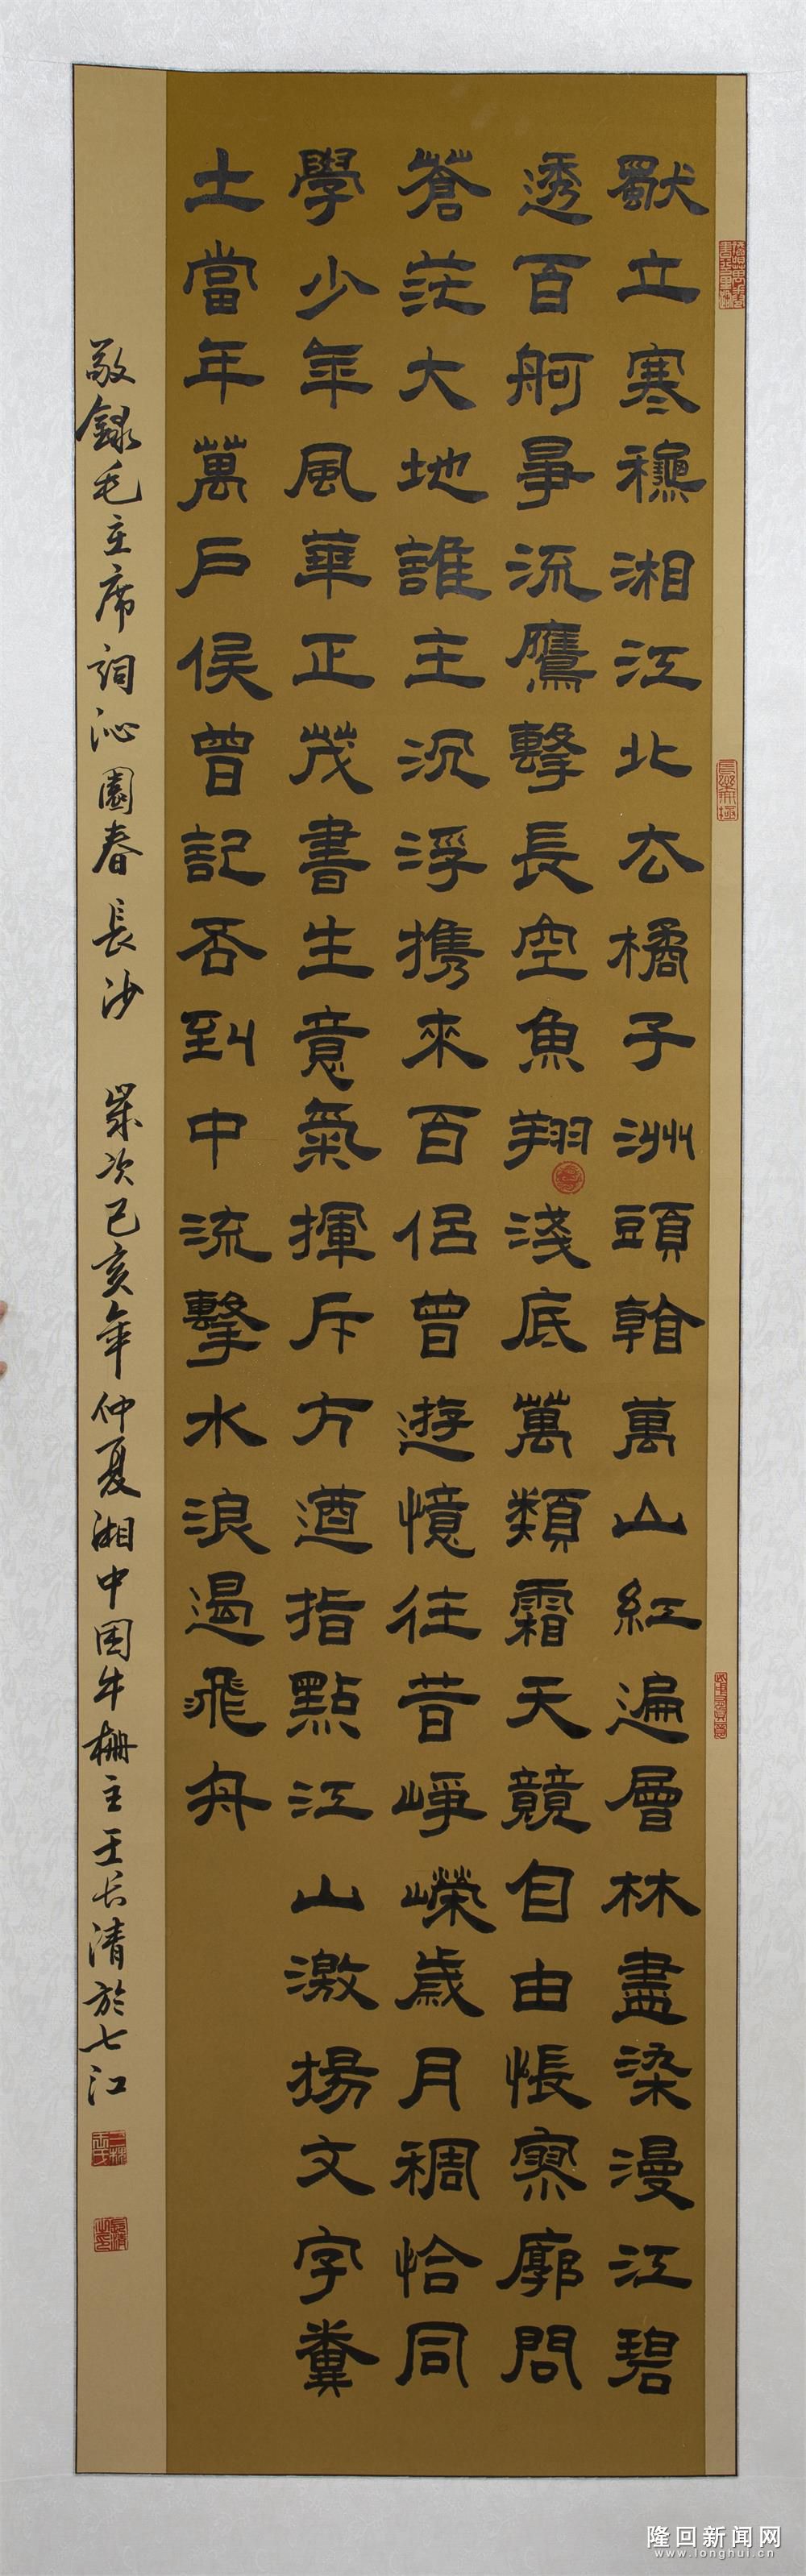 獨立寒龝湘江北去橘子洲頭看萬山紅遍層林盡染漫江碧
透百舸爭流鷹擊長空魚翔淺底萬類霜天競自由悵寥廓問
蒼茫大地誰主沉浮携來百侶曾遊憶往昔崢嶸歲月稠恰同
學少年風華正茂書生意氣揮斥方遒指點江山激揚文字糞
土當年萬戶侯曾記否到中流擊水浪遏飛舟
敬錄毛主席詞沁園春長沙 歲次己亥年仲夏湘中困牛柵主王长清於七江
隆回新闻网
www.longhui.cn